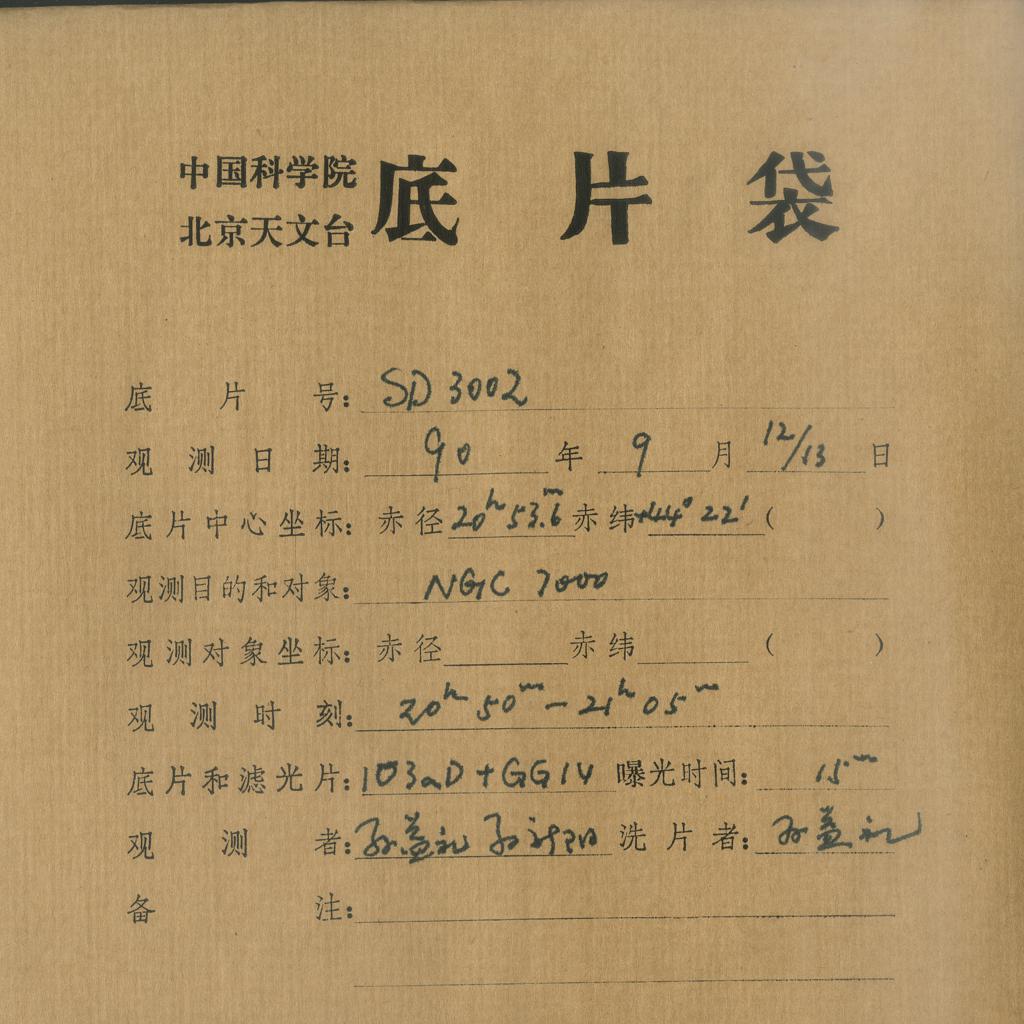 中国科学院
北京天文台
底片袋
底片号：SD 3002
观测日期：90年9月12/13日
底片中心坐标：赤径20ʰ53.6ᵐ赤纬+44°22′（ ）
观测目的和对象：NGC 7000
观测对象坐标：赤径 赤纬 （ ）
观测时刻：20ʰ50ᵐ－21ʰ05ᵐ
底片和滤光片：103aD+GG14 曝光时间：15ᵐ
观测者：孙益礼 孙 洗片者：孙益礼
备注：